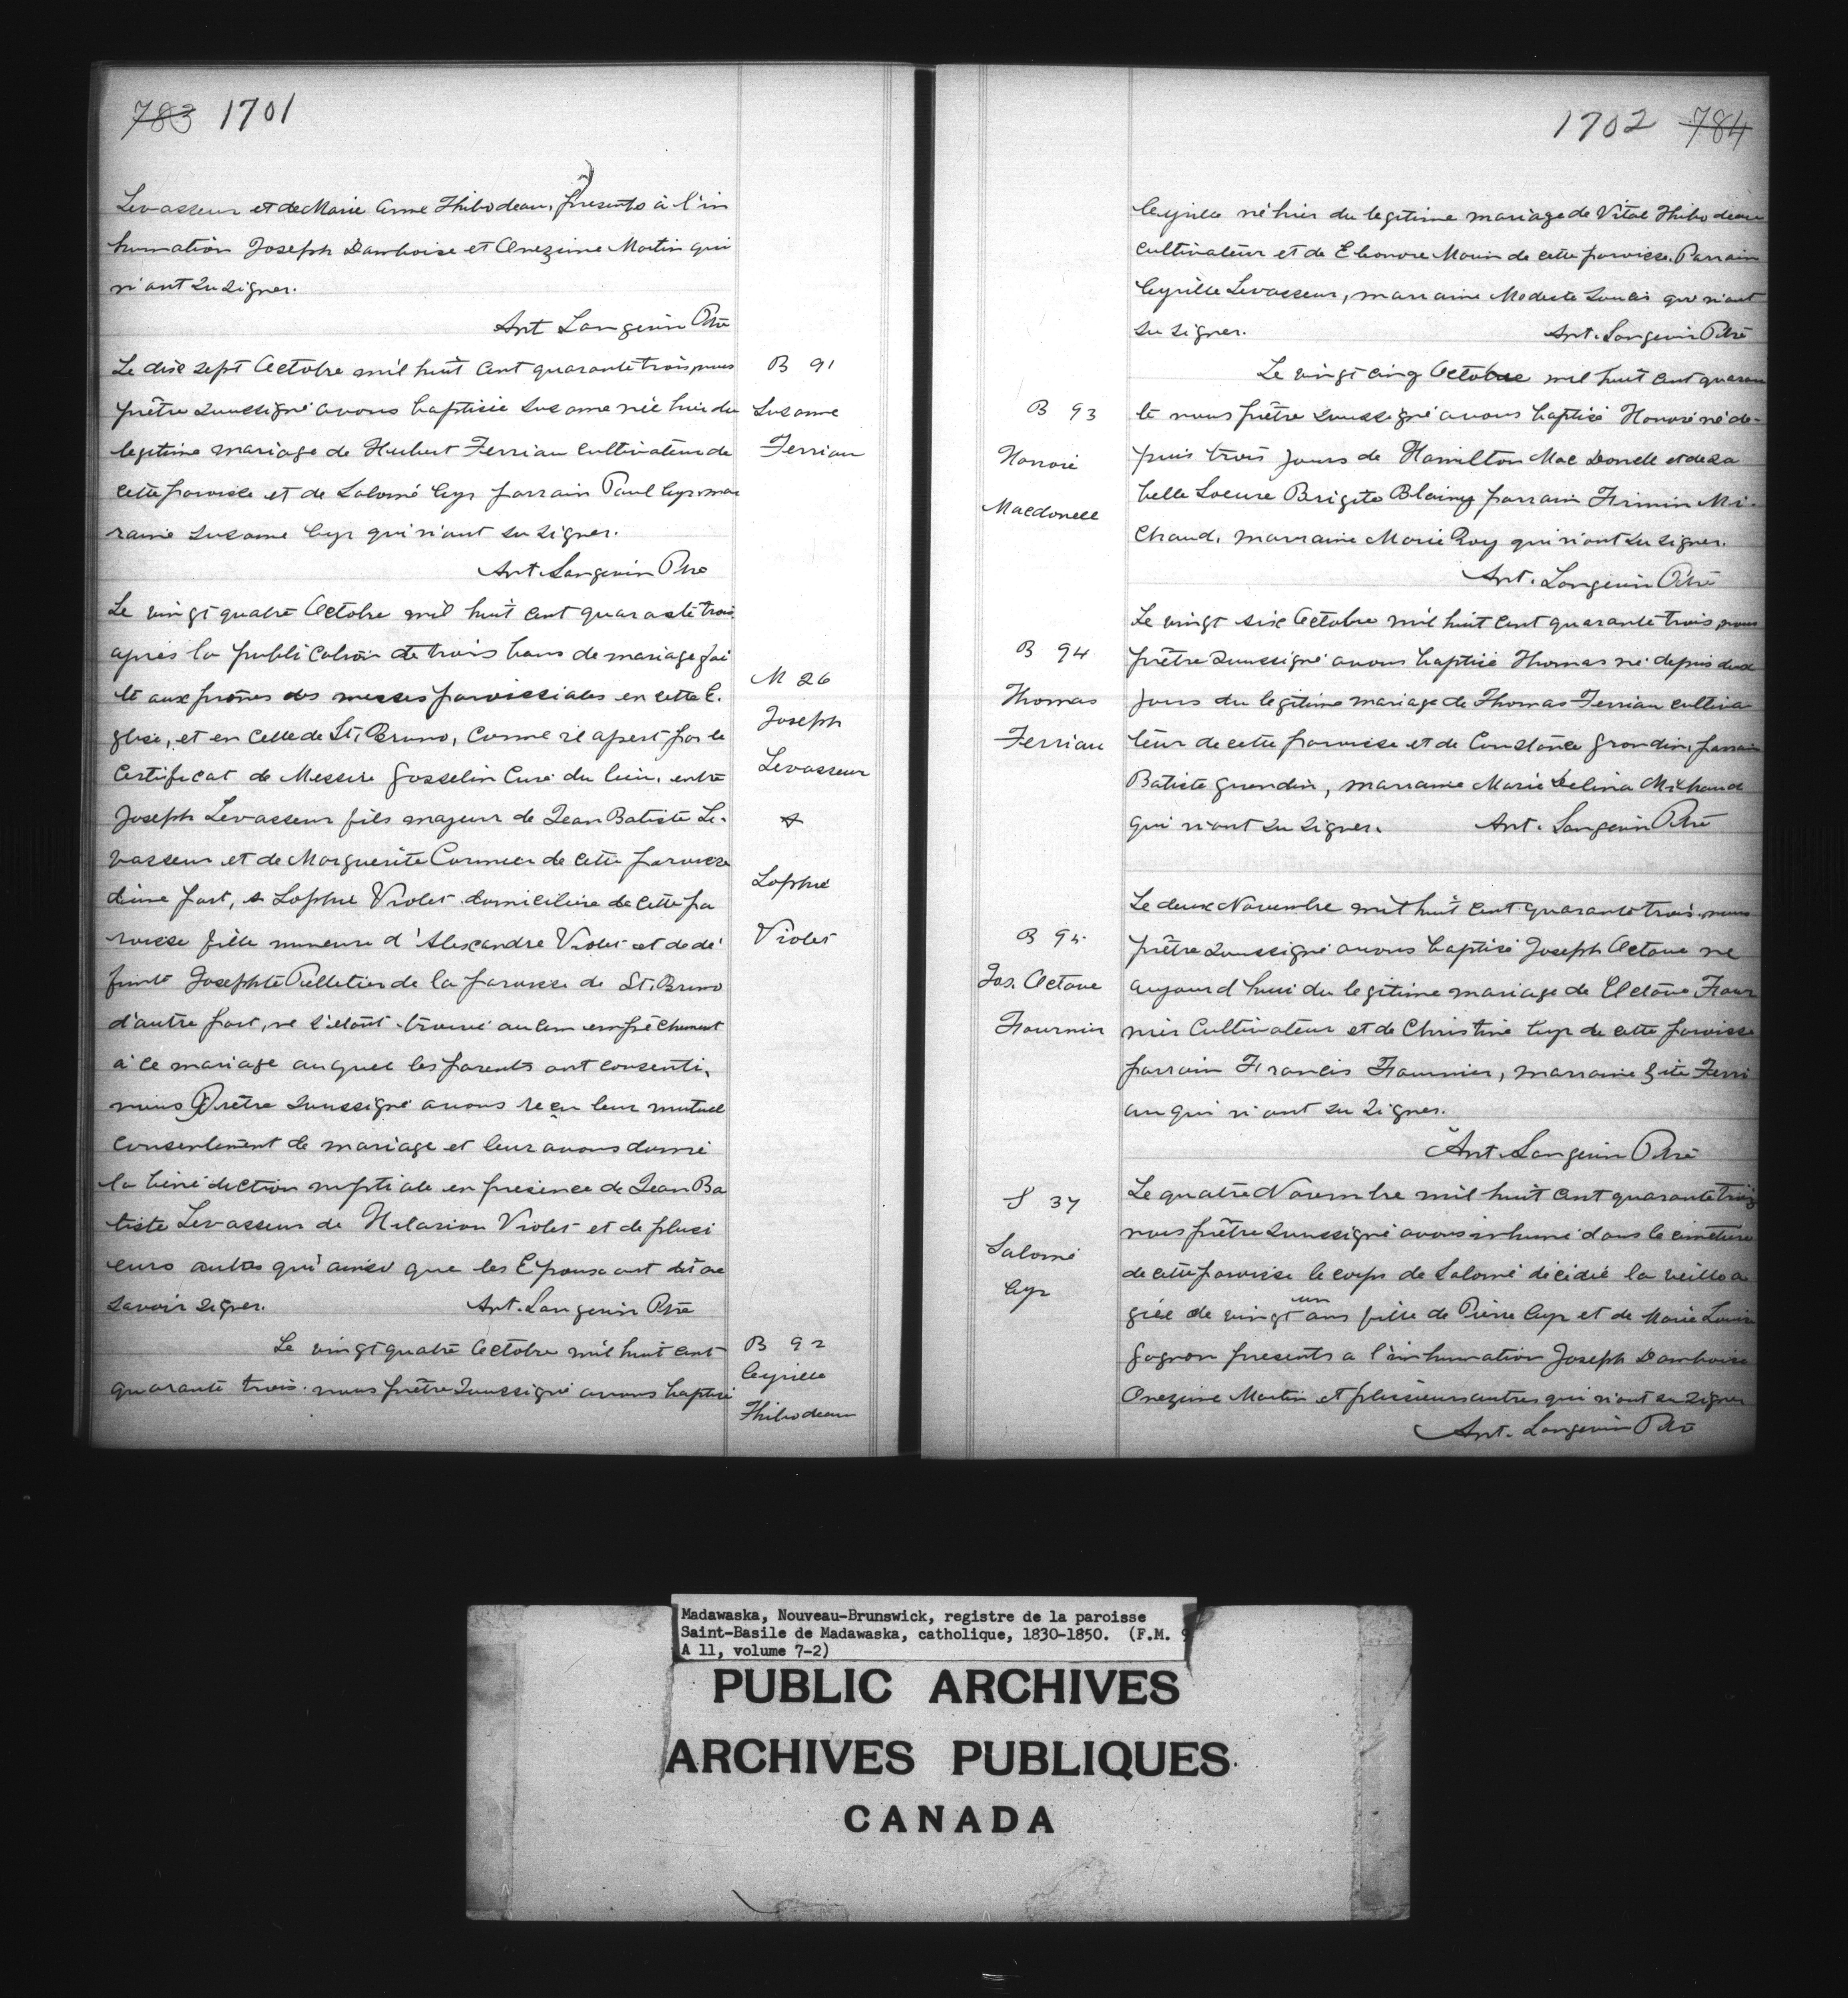 783 1701
Levasseur et de Marie Anne Thibodeau, presents à l'in
humation Joseph Damboise et Onezime Martin qui
n'ont su signer.
Ant Langevin Ptre
Le dix sept Octobre mil huit cent quarante trois nous
prêtre soussigné avons baptisée Susanne née hier du
legitime mariage de Hubert Terriau cultivateur de
cette paroisse et de Salomé Cyr parrain Paul Cyr mar
raine Susanne Cyr qui n'ont su signer.
Ant. Langevin Ptre
B 91
Susanne
Terriau
Le vingt quatre Octobre mil huit cent quarante trois
après la publication de trois bans de mariage fai
te aux prônes des messes paroissiales en cette E.
glise, et en celle de St. Bruno, comme il apert par le
Certificat de Messire Gosselin Curé du lieu, entre
Joseph Levasseur fils majeur de Jean Batiste Le-
vasseur et de Marguerite Cormier de cette paroisse
d'une part, & Sophie Violet domiciliée de cette pa
roisse fille mineure d'Alexandre Violet et de dé
funte Josephte Pelletier de la paroisse de St. Bruno
d'autre part, ne s'etant trouvé aucun empêchement
à ce mariage auquel les parents ont consenti,
nous Prêtre soussigné avons reçu leur mutuel
consentement de mariage et leur avons donné
la bénédiction nuptiale en presence de Jean Ba
tiste Levasseur de Hilarion Violet et de plusi
eurs autres qui ainsi que les Epoux ont dit ne
savoir signer. Ant. Langevin Ptre
M 26
Joseph
Levasseur
&
Sophie
Violet
Le vingt quatre Octobre mil huit cent
quarante trois nous prêtre soussigné avons baptisé
B 92
Cyrille
Thibodeau
1702 784
Cyrille né hier du legitime mariage de Vital Thibodeau
cultivateur et de Eleonore Morin de cette paroisse. Parrain
Cyrille Levasseur, marraine Modeste Soucis qui n'ont
su signer. Ant. Langevin Ptre
Le vingt cinq Octobre mil huit cent quaran
te nous prêtre soussigné avons baptisé Honoré né de-
puis trois jours de Hamilton Mac Donell et de
Brigite parrain Firmin Mi-
chaud, marraine Marie Roy qui n'ont su signer.
Ant. Langevin Ptre
B 93
Honoré
Macdonell
Le vingt six Octobre mil huit cent quarante trois nous
prêtre soussigné avons baptisé Thomas né depuis deux
jours du legitime mariage de Thomas Terriau cultiva
teur de cette paroisse et de Constance Grondin, parrain
Batiste Grondin, marraine Marie Delina Michaud
qui n'ont su signer. Ant. Langevin Ptre
B 94
Thomas
Terriau
Le deux Novembre mil huit cent quarante trois nous
prêtre soussigné avons baptisé Joseph Octave né
aujourd'hui du legitime mariage de Octave Four
nier Cultivateur et de Christine Cyr de cette paroisse
parrain Francis Fournier, marraine Zite Terri
au qui n'ont su signer.
Ant. Langevin Ptre
B 95
Jos. Octave
Fournier
Le quatre Novembre mil huit cent quarante trois
nous prêtre soussigné avons inhumé dans le cimetiere
de cette paroisse le corps de Salomé décédée la veille a
gée de vingt un ans fille de Pierre Cyr et de Marie Louise
Gagnon presents a l'inhumation Joseph Damboise
Onezime Martin et plusieurs autres qui n'ont su signer
Ant. Langevin Ptre
S 37
Salomé
Cyr
Madawaska, Nouveau-Brunswick, registre de la paroisse
Saint-Basile de Madawaska, catholique, 1830-1850. (F.M. 9
A 11, volume 7-2)
PUBLIC ARCHIVES
ARCHIVES PUBLIQUES
CANADA